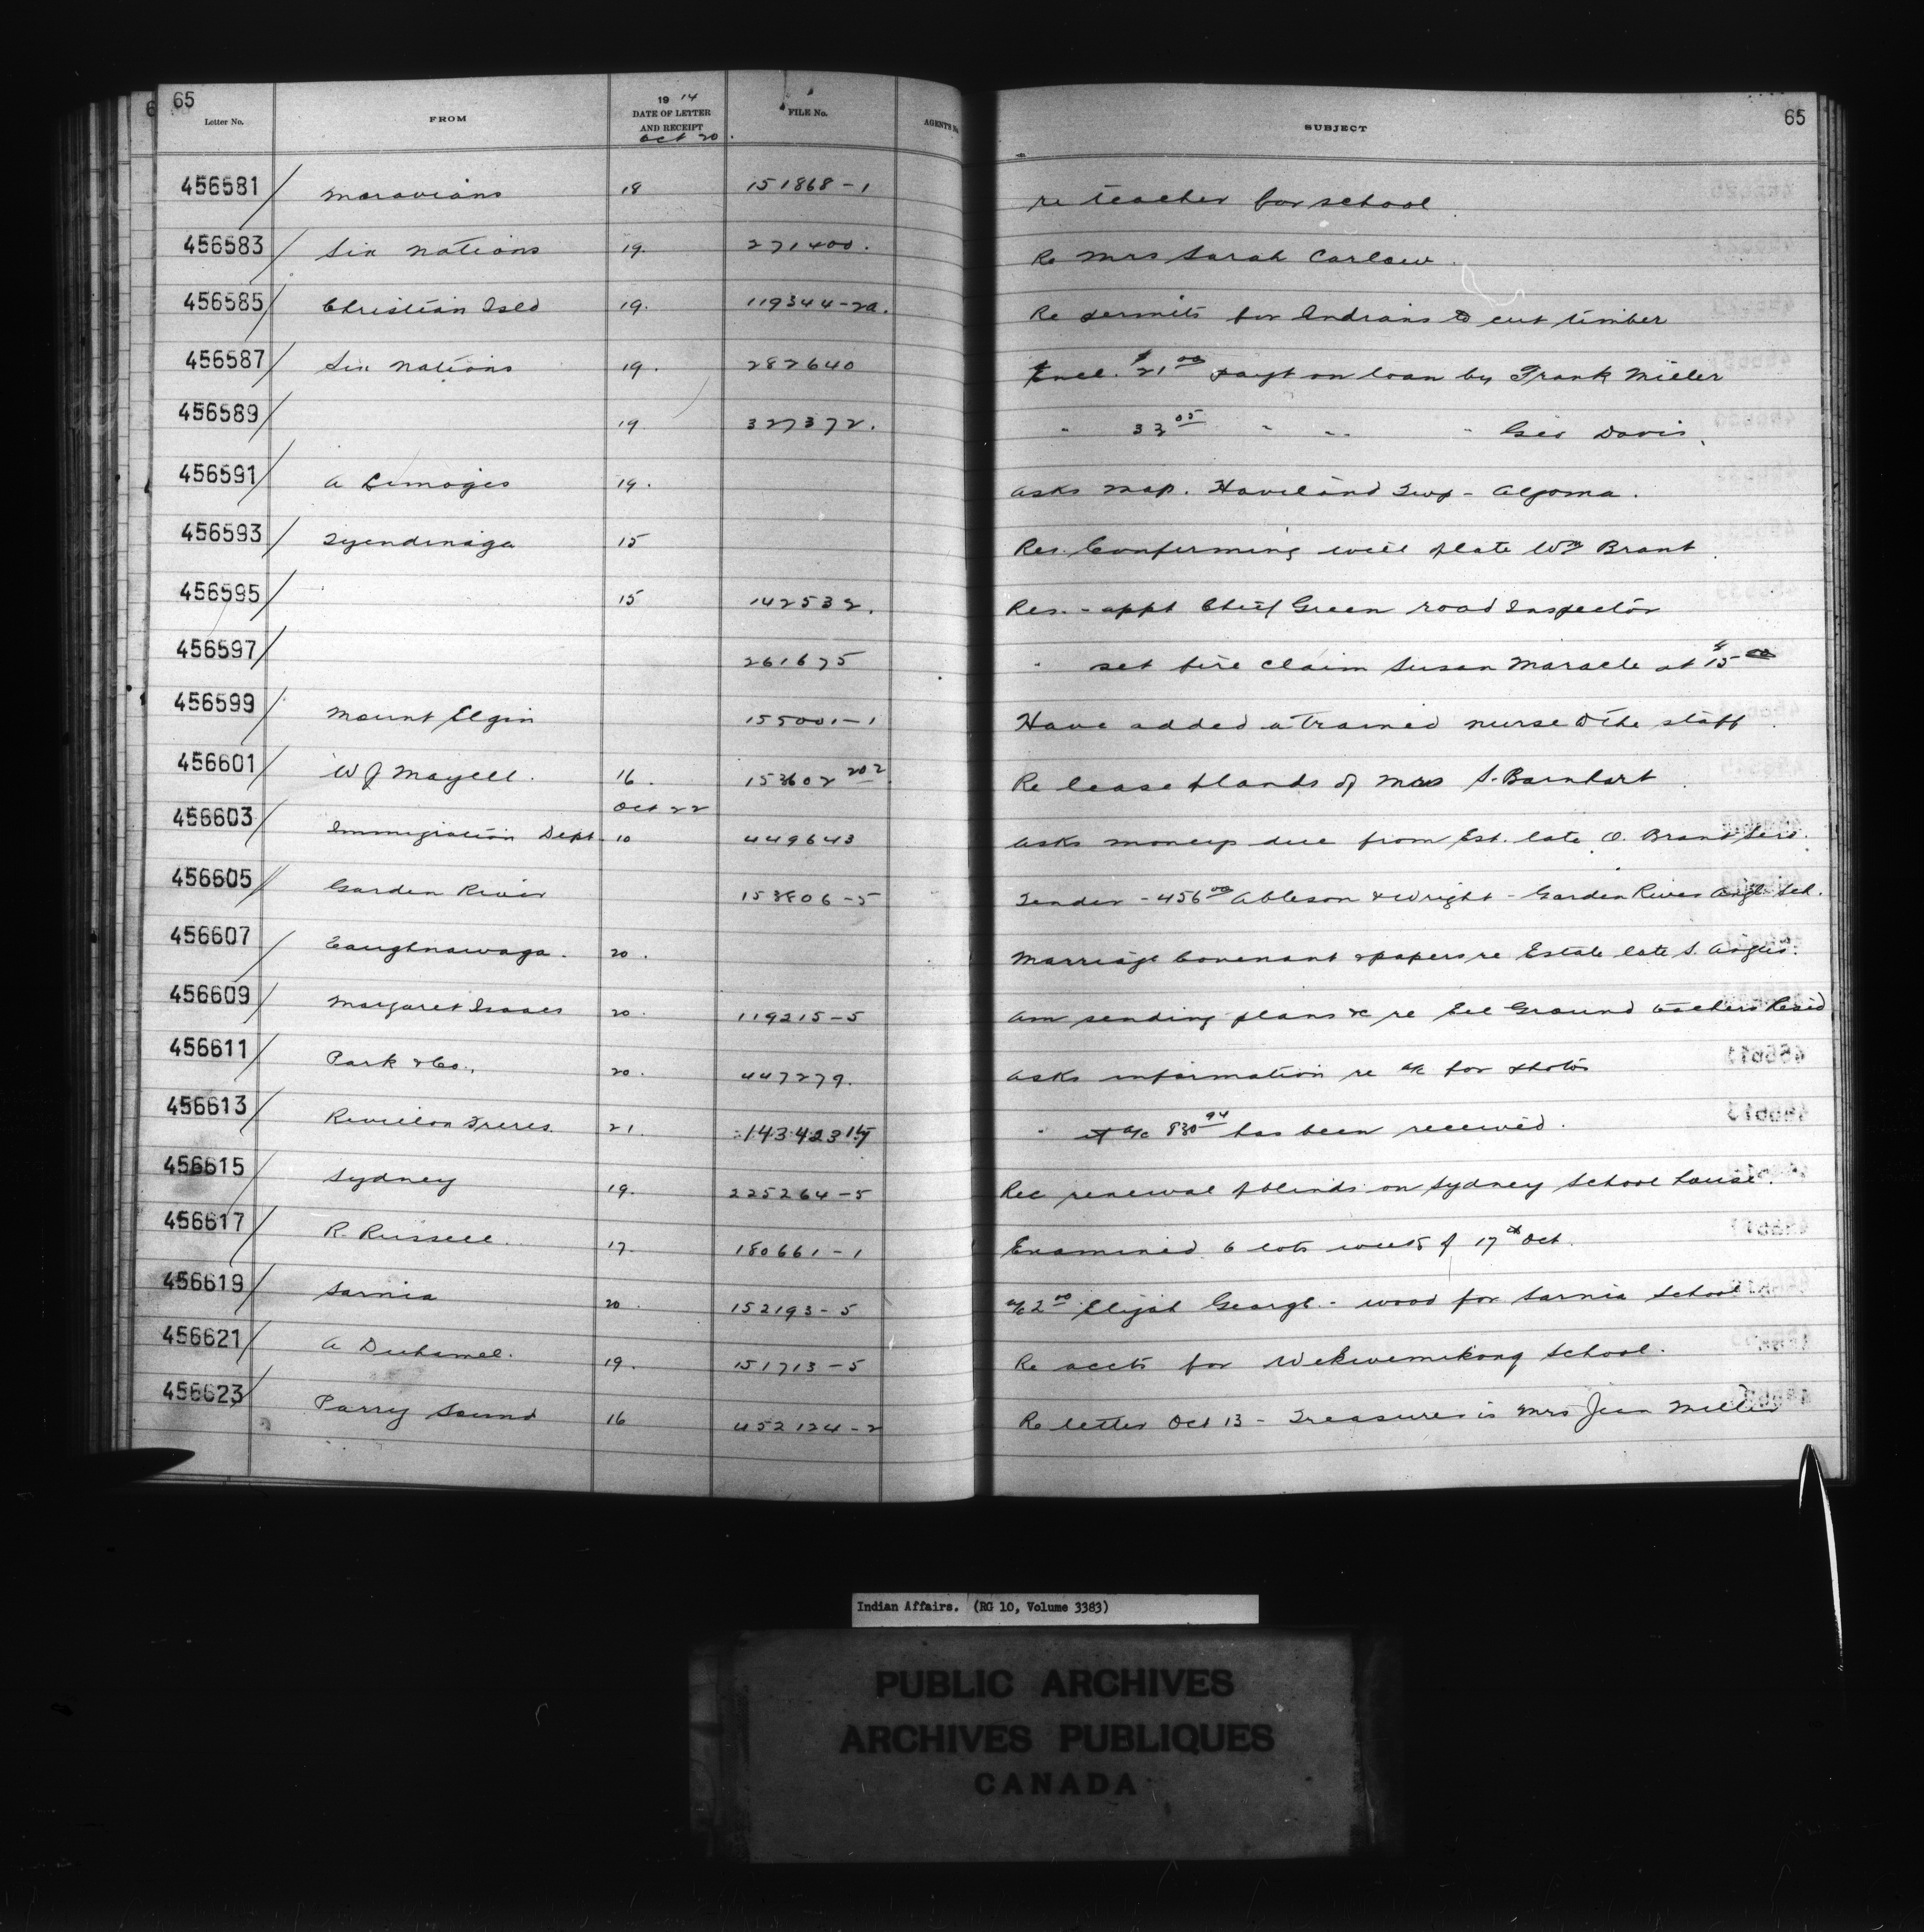 65
65
Letter No. FROM 1914 DATE OF LETTER AND RECEIPT FILE No. AGENT'S No. SUBJECT
Oct 20.
456581 Moravians 18 151868-1 re teacher for school
456583 Six Nations 19. 271400. Re Mrs Sarah Carlow
456585 Christian Isld 19. 119344-2a. Re permits for Indians to cut timber
456587 Six Nations 19. 282640 Encl. $21 00 payt on loan by Frank Miller
456589 19 327372. " 33 05 " " " Geo Davis.
456591 A Limoges 19. Asks map. Haviland Twp - Algoma.
456593 Tyendinaga 15 Res. Confirming will of late Wm Brant
456595 15 142532. Res. - appt Chief Green road Inspector
456597 261675 " set fire claim Susan Maracle at $15 00
456599 Mount Elgin 155001-1 Have added a trained nurse to the staff.
456601 W J Mayell. 16. 153602 202. Re lease of lands of Mrs S. Barnhart
Oct 22
456603 Immigration Dept. 10 449643 Asks moneys due from Est. late O. Brant
456605 Garden River 153806-5 Tender - 456 00 Ableson & Wright - Garden River Angl. Sch.
456607 Caughnawaga. 20. Marriage Covenant & papers re Estate late S. Angus.
456609 Margaret Isaacs 20. 119215-5 Am sending plans &c re Eel Ground teachers Resid
456611 Park & Co., 20. 447279. Asks information re a/c for photos
456613 Revillon Freres. 21. 143423 " if a/c 830 94 has been received.
456615 Sydney 19. 225264-5 Rec renewal of blinds on Sydney School house.
456617 R. Russell. 17. 180661-1 Examined 6 lots week of 17th Oct.
456619 Sarnia 20. 152193-5 a/c 2 00 Elijah George - wood for Sarnia School
456621 A Duhamel. 19. 151713-5 Re accts for Wekwemikong School.
456623 Parry Sound 16 452124-2 Re letter Oct 13 - Treasurer is Mrs Jean Miller
Indian Affairs. (RG 10, Volume 3383)
PUBLIC ARCHIVES
ARCHIVES PUBLIQUES
CANADA